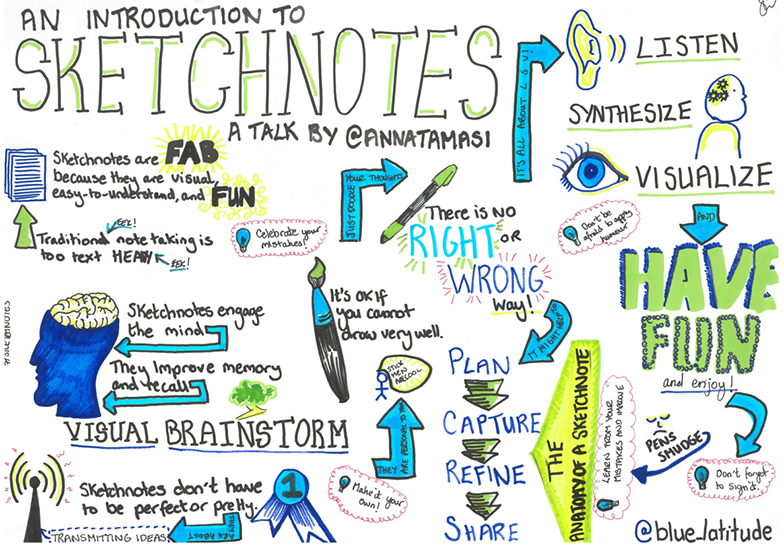 AN INTRODUCTION TO
SKETCHNOTES
A TALK BY @ANNATAMASI
Sketchnotes are FAB
because they are visual,
easy-to-understand, and FUN
Traditional note taking is
too text HEAVY
EEK!
EEK!
Celebrate your
mistakes!
JUST DOODLE
YOUR THOUGHTS
There is NO
RIGHT OR
WRONG
way!
IT'S ALL ABOUT L S V!
LISTEN
SYNTHESIZE
VISUALIZE
Don't be
afraid to apply
humour
AND
HAVE
FUN
and enjoy!
Sketchnotes engage
the mind
They improve memory
and recall
VISUAL BRAINSTORM
It's OK if
you cannot
draw very well.
STICK
MEN
ARE COOL
THEY ARE PERSONAL TO YOU
Make it your
own!
Sketchnotes don't have
to be perfect or pretty.
1
THEY
ARE ABOUT
TRANSMITTING IDEAS
IT MIGHT HELP TO
PLAN
CAPTURE
REFINE
SHARE
THE
ANATOMY OF A SKETCHNOTE
LEARN FROM YOUR
MISTAKES AND IMPROVE
PENS
SMUDGE
Don't forget
to sign it.
@blue_latitude